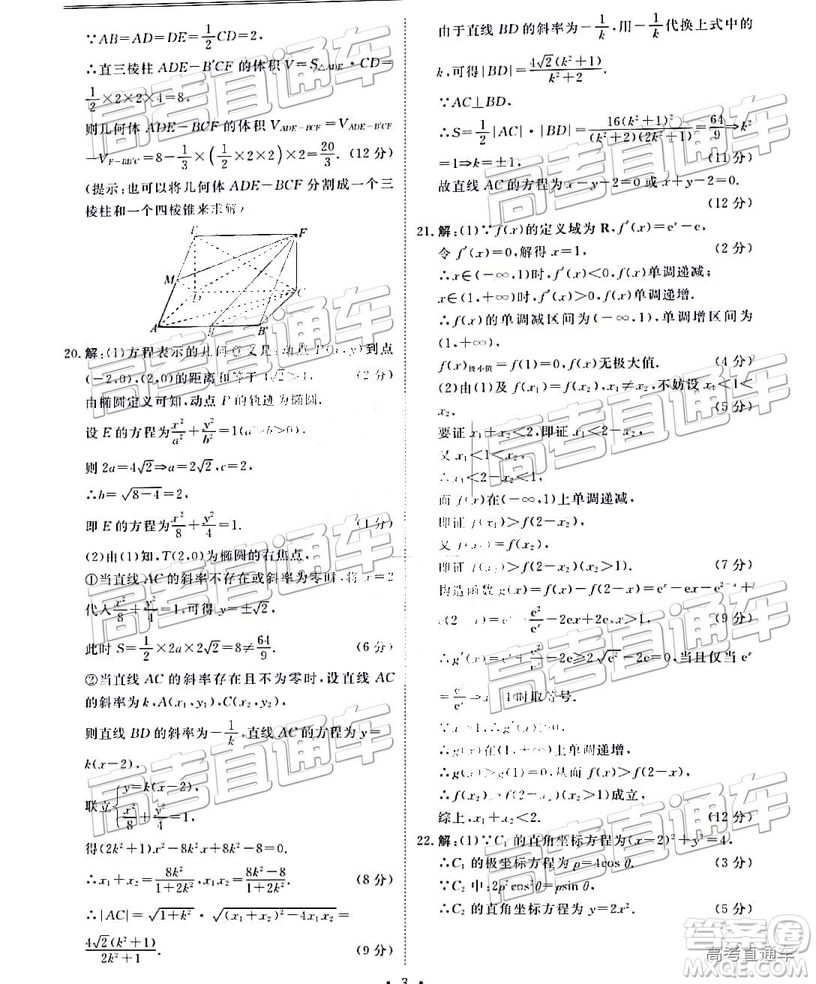 ∵AB=AD=DE=1/2CD=2,
∴直三棱柱 ADE-B'CF 的体积 V=S△ADE·CD=
1/2×2×2×4=8,
则几何体 ADE-BCF 的体积 V_{ADE-BCF}=V_{ADE-B'CF}
-V_{F-BB'C}=8-1/3×(1/2×2×2)×2=20/3. (12 分)
(提示:也可以将几何体 ADE-BCF 分割成一个三
棱柱和一个四棱锥来求解)
F
M
A
B'
20. 解:(1)方程表示的几何意义是:动点 P(x,y)到点
(-2,0),(2,0)的距离和等于4√2>4. (2 分)
由椭圆定义可知,动点 P 的轨迹为椭圆.
设 E 的方程为x²/a²+y²/b²=1(a>b>0).
则 2a=4√2⇒a=2√2,c=2.
∴b=√(8-4)=2,
即 E 的方程为x²/8+y²/4=1. (4 分)
(2)由(1)知,T(2,0)为椭圆的右焦点,
①当直线 AC 的斜率不存在或斜率为零时,将 x=2
代入x²/8+y²/4=1,可得 y=±√2.
此时 S=1/2×2a×2√2=8≠64/9. (6 分)
②当直线 AC 的斜率存在且不为零时,设直线 AC
的斜率为 k,A(x₁,y₁),C(x₂,y₂),
则直线 BD 的斜率为-1/k,直线 AC 的方程为 y=
k(x-2).
联立{y=k(x-2), x²/8+y²/4=1,
得(2k²+1)x²-8k²x+8k²-8=0.
∴x₁+x₂=8k²/(1+2k²),x₁x₂=(8k²-8)/(1+2k²). (8 分)
∴|AC|=√(1+k²)·√((x₁+x₂)²-4x₁x₂)=
4√2(k²+1)/(2k²+1). (9 分)
由于直线 BD 的斜率为-1/k,用-1/k代换上式中的
k,可得|BD|=4√2(k²+1)/(k²+2).
∵AC⊥BD,
∴S=1/2|AC|·|BD|=16(k²+1)²/((k²+2)(2k²+1))=64/9⇒k²
=1⇒k=±1. (11 分)
故直线 AC 的方程为 x-y-2=0 或 x+y-2=0.
(12 分)
21. 解:(1)∵f(x)的定义域为 R,f'(x)=eˣ-e,
令 f'(x)=0,解得 x=1, (2 分)
∴x∈(-∞,1)时,f'(x)<0,f(x)单调递减;
x∈(1,+∞)时,f'(x)>0,f(x)单调递增.
∴f(x)的单调减区间为(-∞,1),单调增区间为
(1,+∞),
f(x)极小值=f(1)=0,无极大值. (4 分)
(2)由(1)及 f(x₁)=f(x₂),x₁≠x₂,不妨设 x₁<1<
x₂. (5 分)
要证 x₁+x₂<2,即证 x₁<2-x₂.
又 x₁<1<x₂,
而 f(x)在(-∞,1)上单调递减,
即证 f(x₁)>f(2-x₂),
又 f(x₁)=f(x₂),
即证 f(x₂)>f(2-x₂). (7 分)
构造函数 g(x)=f(x)-f(2-x)
=eˣ-e²/eˣ-2ex+2e,x>1. (9 分)
∴g'(x)=eˣ+e²/eˣ-2e≥2√e²-2e=0,当且仅当 eˣ
=e²/eˣ⇒x=1时取等号.
∵x>1,∴g'(x)>0,
∴g(x)在(1,+∞)上单调递增,
∴g(x)>g(1)=0⇒f(x)>f(2-x),
∴f(x₂)>f(2-x₂)成立,
综上,x₁+x₂<2. (12 分)
22. 解:(1)∵C₁ 的直角坐标方程为(x-2)²+y²=4,
∴C₁ 的极坐标方程为 ρ=4cos θ. (3 分)
∵C₂ 中:2ρ²cos²θ=ρsin θ,
∴C₂ 的直角坐标方程为 y=2x². (5 分)
· 3 ·
高考直通车
高考直通车
高考直通车
高考直通车
高考直通车
高考直通车
高考直通车
高考直通车
答案圈
MXQE.COM